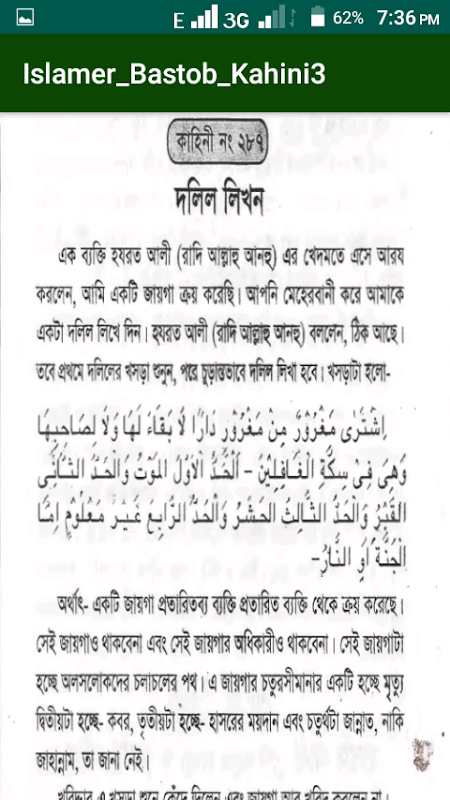 E 3G 62% 7:36 PM
Islamer_Bastob_Kahini3
কাহিনী নং ২৮৭
দলিল লিখন
এক ব্যক্তি হযরত আলী (রাদি আল্লাহু আনহু) এর খেদমতে এসে আরয
করলেন, আমি একটি জায়গা ক্রয় করেছি। আপনি মেহেরবানী করে আমাকে
একটা দলিল লিখে দিন। হযরত আলী (রাদি আল্লাহু আনহু) বললেন, ঠিক আছে।
তবে প্রথমে দলিলের খসড়া শুনুন, পরে চুড়ান্তভাবে দলিল লিখা হবে। খসড়াটা হলো-
اِشْتَرٰى مَغْرُوْرٌ مِنْ مَغْرُوْرٍ دَارًا لَا بَقَاءَ لَهَا وَلَا لِصَاحِبِهَا
وَهِىَ فِىْ سِكَّةِ الْغَافِلِيْنَ – اَلْحَدُّ الْاَوَّلُ الْمَوْتُ وَالْحَدُّ الثَّانِىْ
الْقَبْرُ وَالْحَدُّ الثَّالِثُ الْحَشْرُ وَالْحَدُّ الرَّابِعُ غَيْرُ مَعْلُوْمٍ اِمَّا
الْجَنَّةُ اَوِ النَّارُ–
অর্থাৎ- একটি জায়গা প্রতারিতব্য ব্যক্তি প্রতারিত ব্যক্তি থেকে ক্রয় করেছে।
সেই জায়গাও থাকবেনা এবং সেই জায়গার অধিকারীও থাকবেনা। সেই জায়গাটা
হচ্ছে অলসলোকদের চলাচলের পথ। এ জায়গার চতুরসীমানার একটি হচ্ছে মৃত্যু
দ্বিতীয়টা হচ্ছে- কবর, তৃতীয়টা হচ্ছে- হাসরের ময়দান এবং চতুর্থটা জান্নাত, নাকি
জাহান্নাম, তা জানা নেই।
খরিদ্দার এ খসড়া শুনে কেঁদে দিলেন এবং জায়গা আর খরিদ করলেন না।